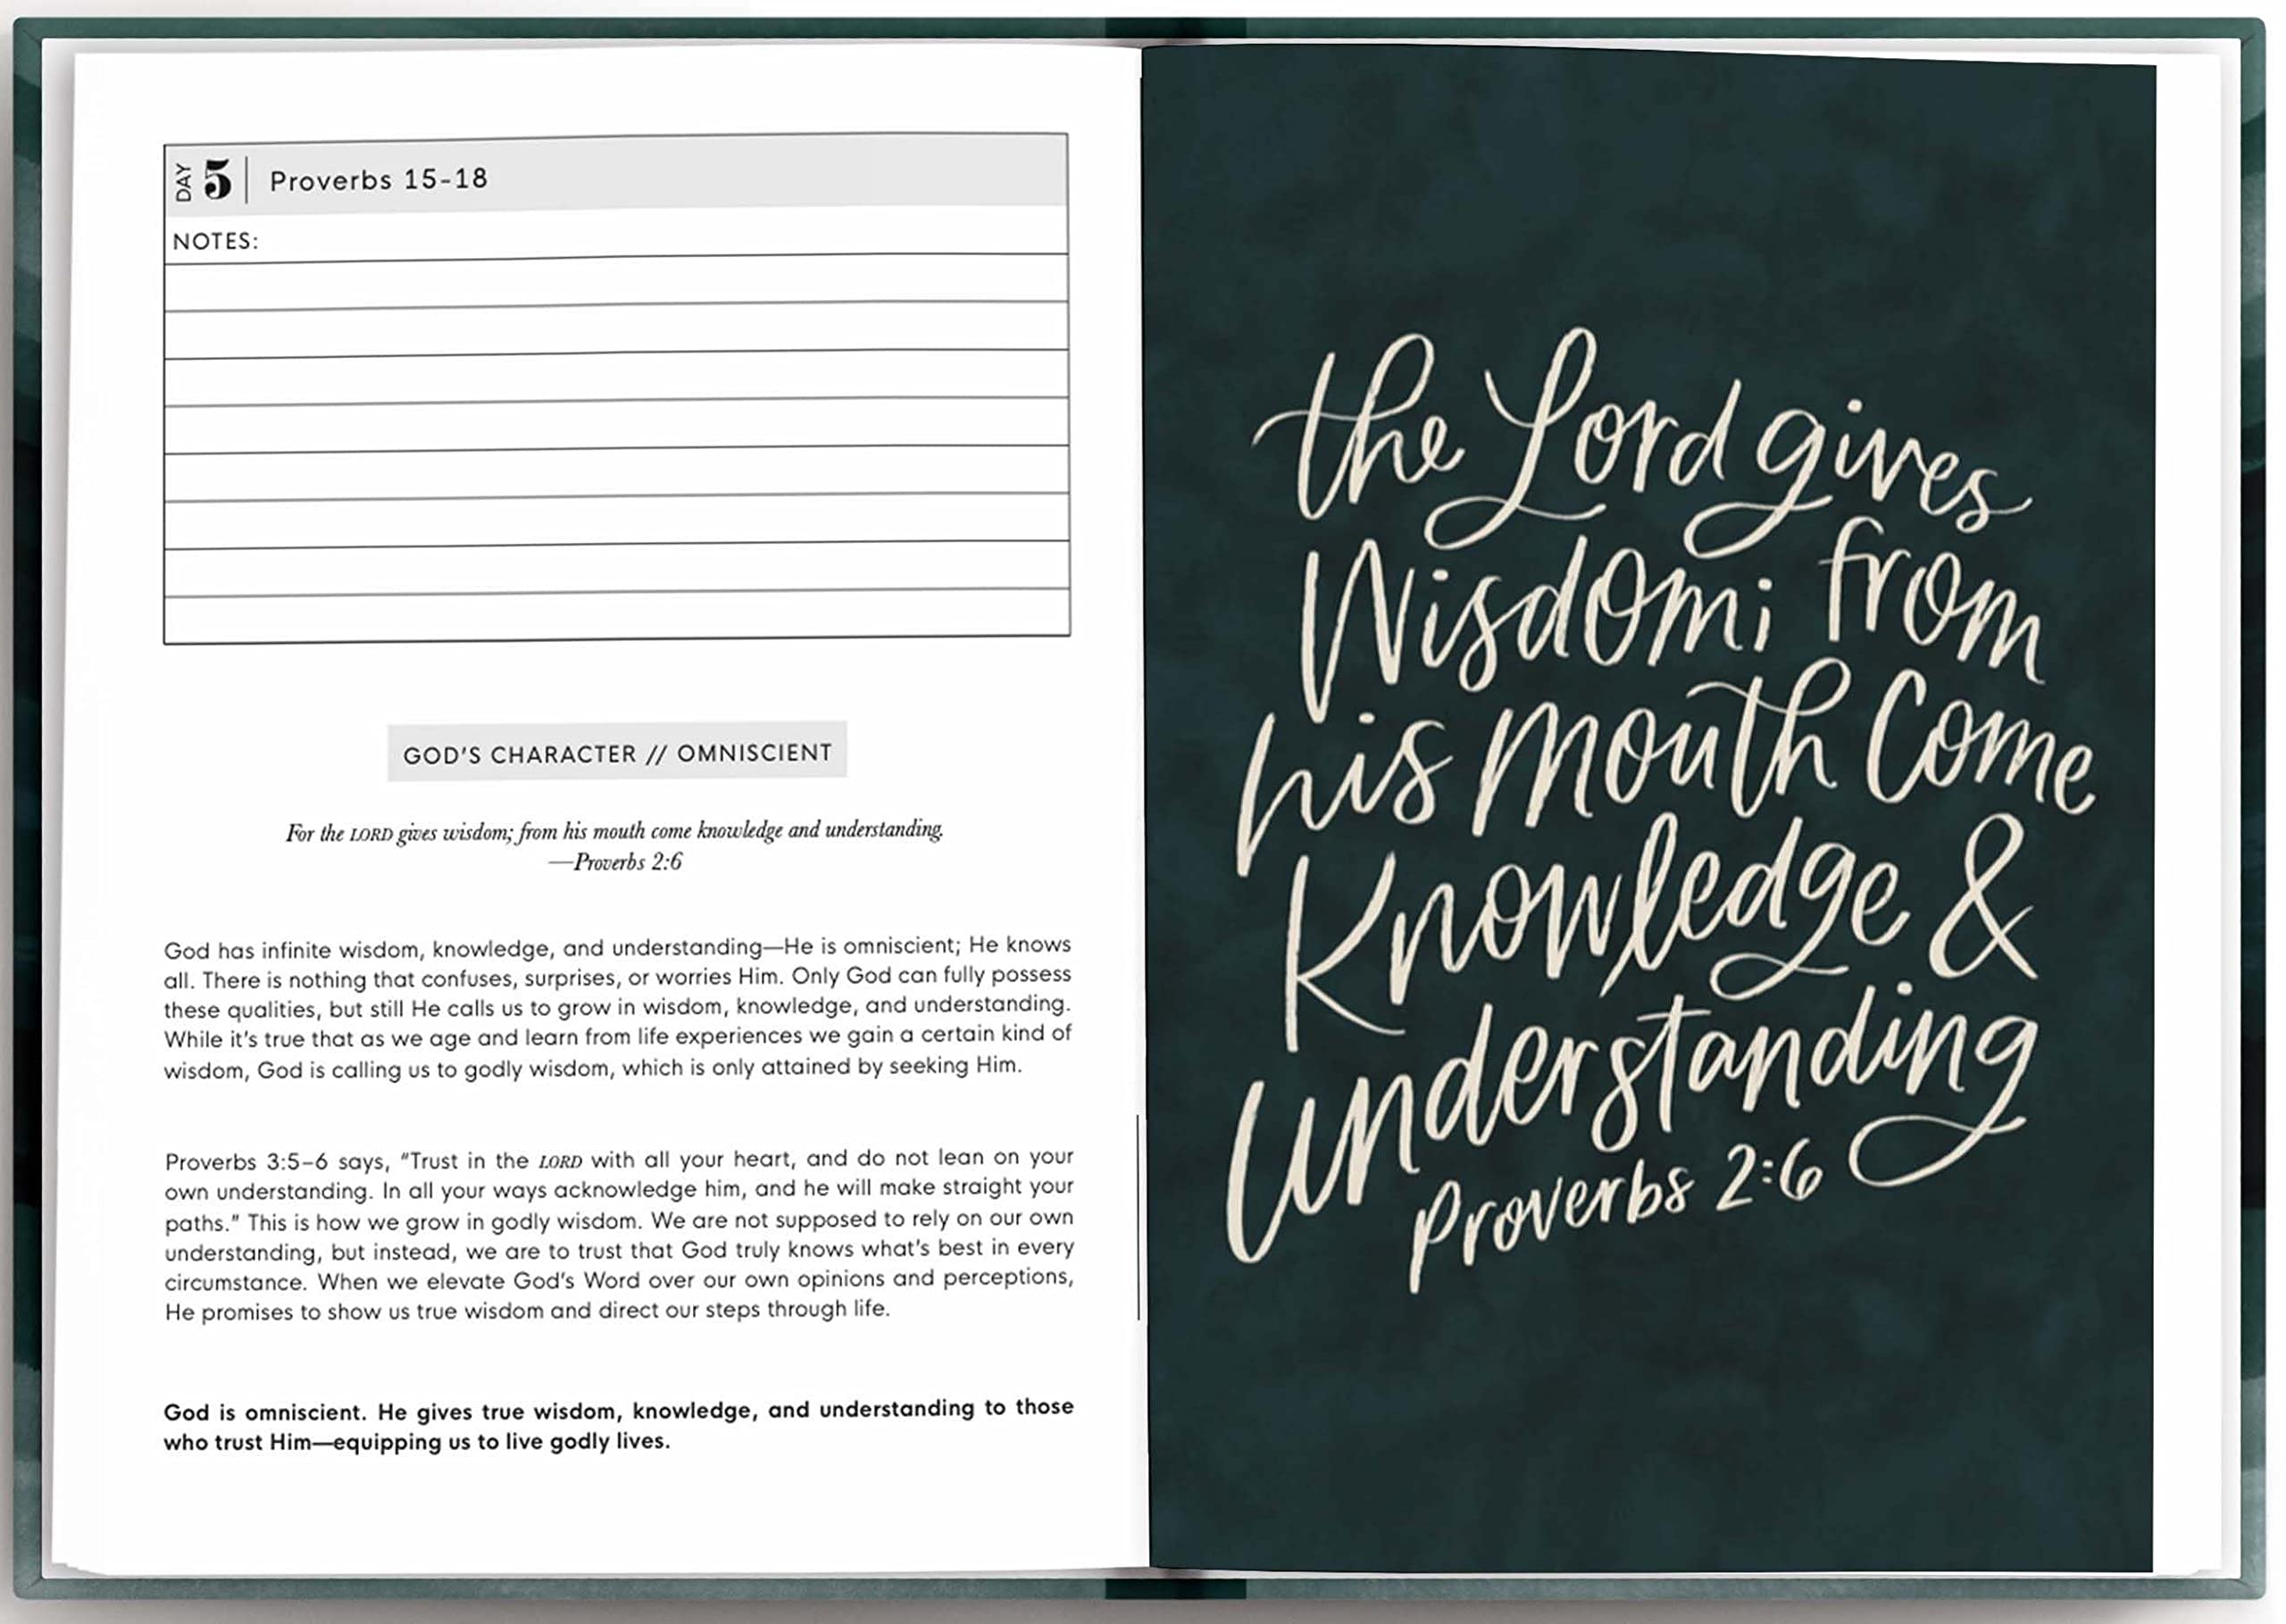 DAY 5 | Proverbs 15-18
NOTES:
GOD'S CHARACTER // OMNISCIENT
For the LORD gives wisdom; from his mouth come knowledge and understanding.
—Proverbs 2:6
God has infinite wisdom, knowledge, and understanding—He is omniscient; He knows
all. There is nothing that confuses, surprises, or worries Him. Only God can fully possess
these qualities, but still He calls us to grow in wisdom, knowledge, and understanding.
While it's true that as we age and learn from life experiences we gain a certain kind of
wisdom, God is calling us to godly wisdom, which is only attained by seeking Him.
Proverbs 3:5–6 says, "Trust in the LORD with all your heart, and do not lean on your
own understanding. In all your ways acknowledge him, and he will make straight your
paths." This is how we grow in godly wisdom. We are not supposed to rely on our own
understanding, but instead, we are to trust that God truly knows what's best in every
circumstance. When we elevate God's Word over our own opinions and perceptions,
He promises to show us true wisdom and direct our steps through life.
God is omniscient. He gives true wisdom, knowledge, and understanding to those
who trust Him—equipping us to live godly lives.
the Lord gives
Wisdom; from
his mouth Come
Knowledge &
understanding
Proverbs 2:6